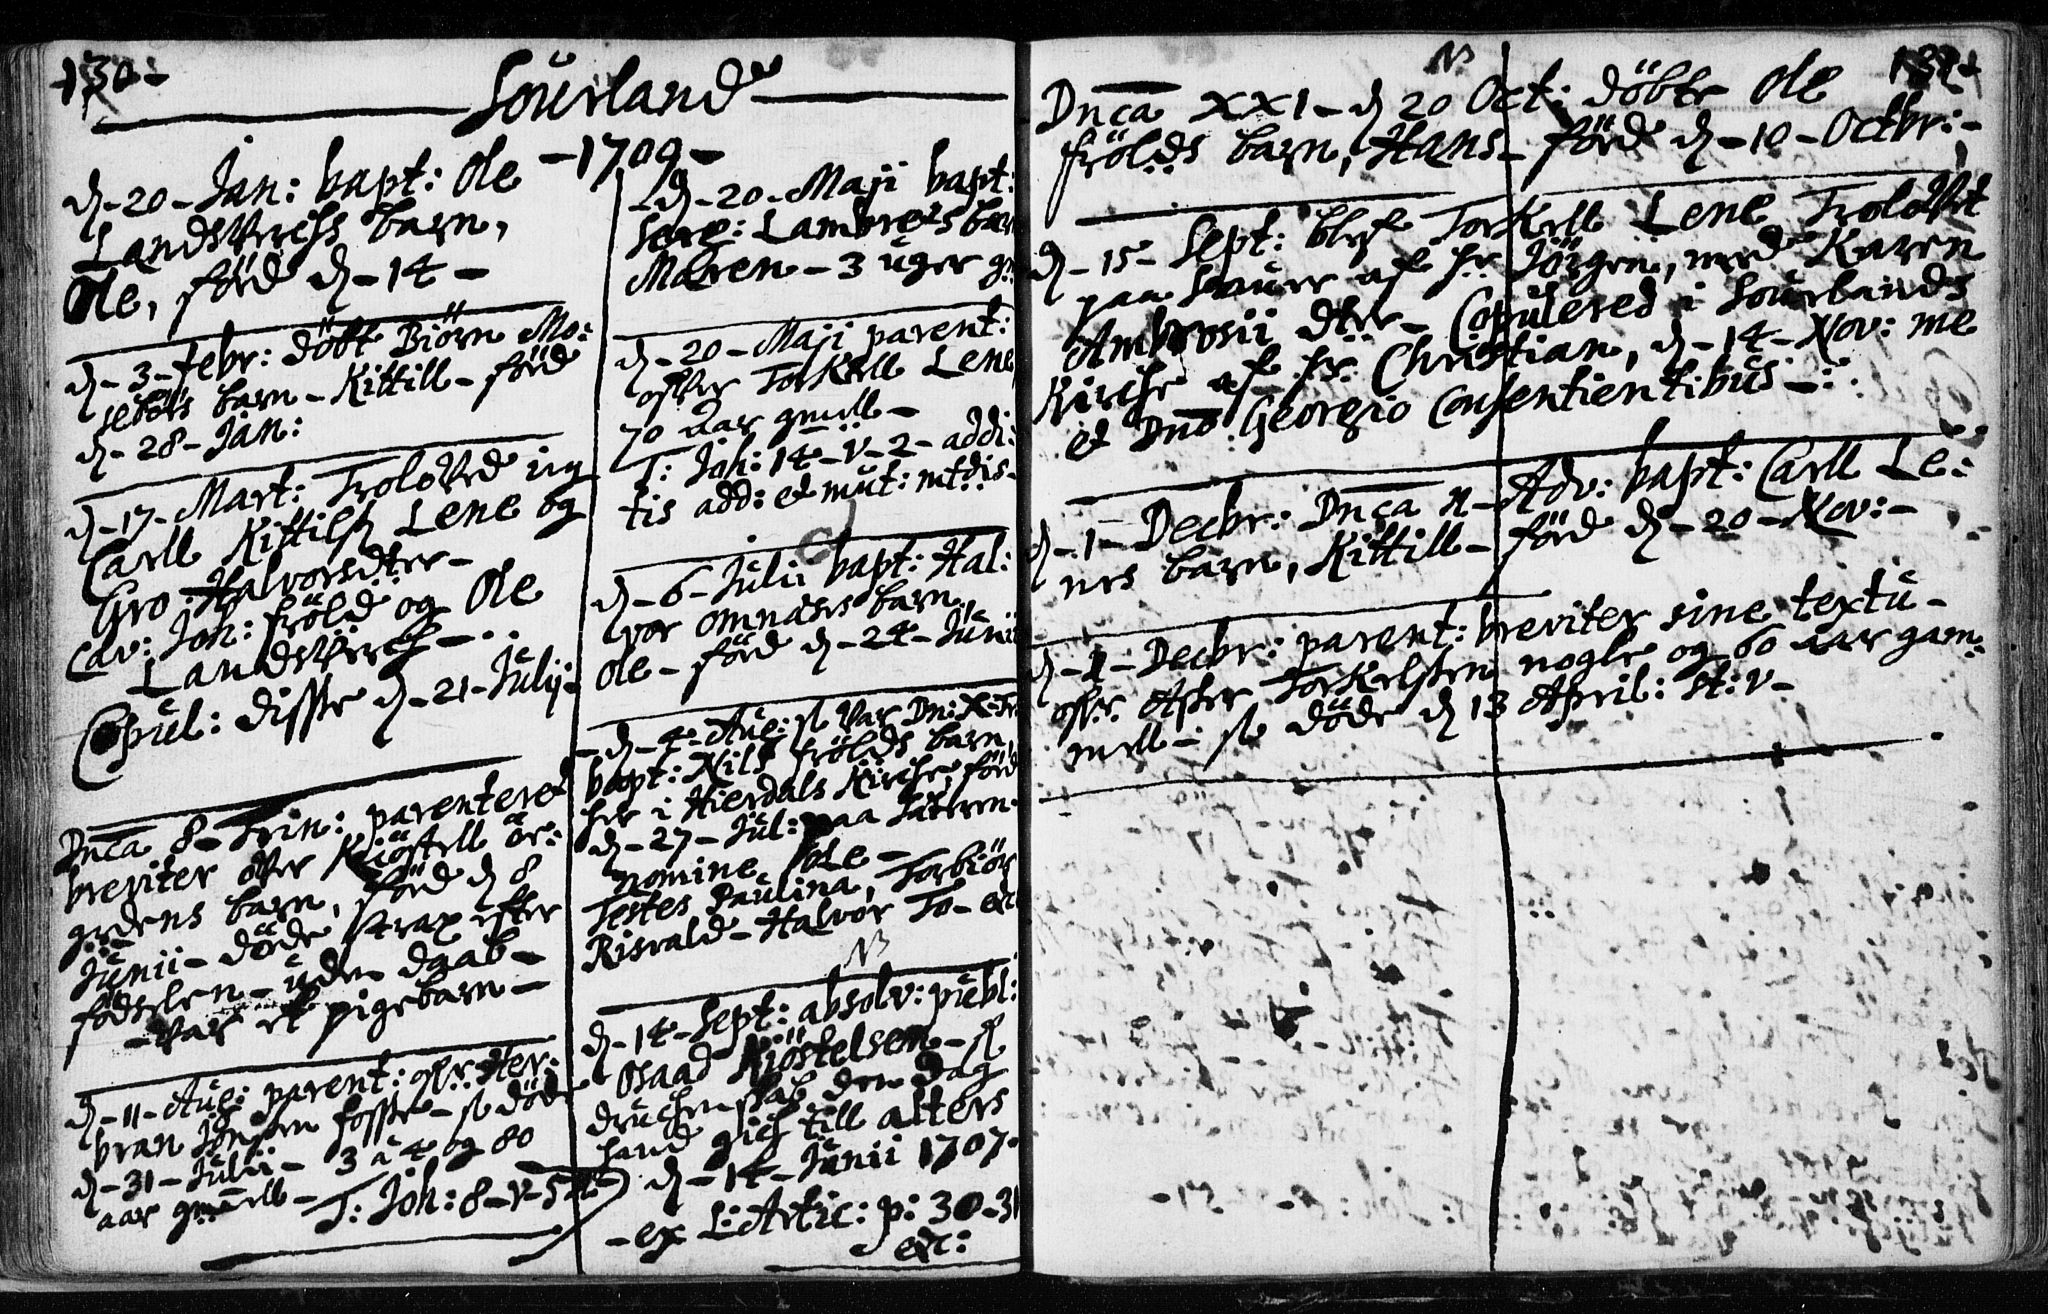 130-
Sourland
-1709-
d -20- Jan: bapt: Ole
Landsverchs barn,
Ole, förd d -14-
d -3- febr: döbt Biörn Mo:
sebøs barn - Kittill - förd
d -28- Jan:
d -17- Mart: Troloved ung
Carll Kittilss Lene og
Gro Halvorsdter -
Cav: Joh: fröld og Ole
Landsverch - . .
Copul: disse d -21- Julij -
Dnca 8- Trin: parenteret
breviter over Kiöstell ör:
gedens barn, förd d 8
Junii - døde strax efter
födselen - uden daab -
- var et pigebarn -
d -11- Aug: parent: ofver Her:
bran Jonsen fosse - so döde
d -31- Julii - 3 a 4 og 80
aar gmell -
T: Joh: 8 - v - 51
- d -20- Maji bapt:
Serg: Lambrets barn
Maren - 3 uger g:
d -20- Maji parent:
ofver Torkell Lene,
70 Aar gmell -
T: Joh: 14 - v - 2 - addi:
tis add: et mut: mtdis -
d -6- Julii bapt: Hal:
vor omnæss barn
Ole - förd d -24- Junii
- d -4- Aug: so var Dn: X. Tr
bapt: Nils frölds barn
her i Hierdals Kirche, förd
d -27- Jul: paa Sæteren.
nomine, Ole -
Testes Paulina, Torbiör
Risvald - Halvor To- etc
NB
d -14- Sept: absolv: publ:
Osaad Kiöstelsen - fl
druchenskab den Dag
hand gich till alters
d -14- Junii 1707.
- ex L: Artic: p: 30-31
etc:
NB
131-
Dnca XXI - d 20 Oct: döbte Ole
frölds barn, Hans - förd d -10- Octbr: -
d -15- Sept: blef Torkell Lene Trolovet
paa Sauer af hr Jörgen, med Karen
Ambrosii dter - Copulered i Sourlands
Kirche af hr. Christian, d -14- Nov: me
et Dno Georgio Consentientibus - :
d -1- Decbr: Dnca n - Adv: bapt: Carll Le:
nes barn, Kittill - förd d -20- Nov: -
d -1- Decbr: parent: breviter sine textu -
ofver Asser Torkelsen nogle og 60 aar gam:
mell - so døde d 13 April: st: v -